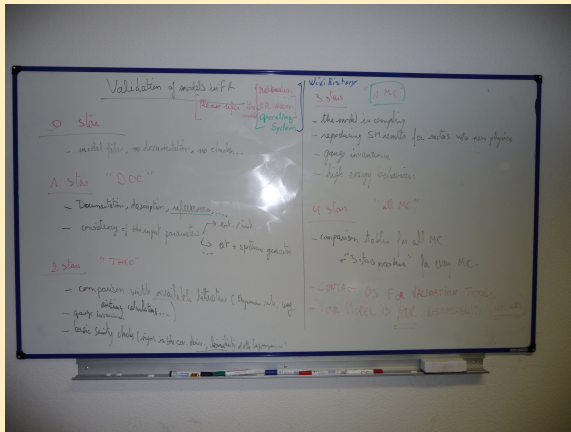 Validation of models in FR
Please define the
mathematica
FR version
operating
System
0 star
- model files, no documentation, no checks...
1 star "DOC"
- Documentation, description, references
- consistency of the input parameters → ext. / int.
→ ext + spectrum generator
2 stars "THEO"
- comparison with available literature (Feynman rules,
existing calculations...)
- gauge invariance
- basic sanity checks (
hermiticity of the lagrangian
Wiki history
3 stars "1 MC"
- the model is compiling
- reproducing SM results for sectors w/o new physics
- gauge invariance
- high energy behaviour
4 stars "all MC"
- comparison tables for all MC
"3 stars procedure" for every MC.
- CONTACT US FOR VALIDATION TOOLS
- YOUR MODEL IS YOUR RESPONSIBILITY